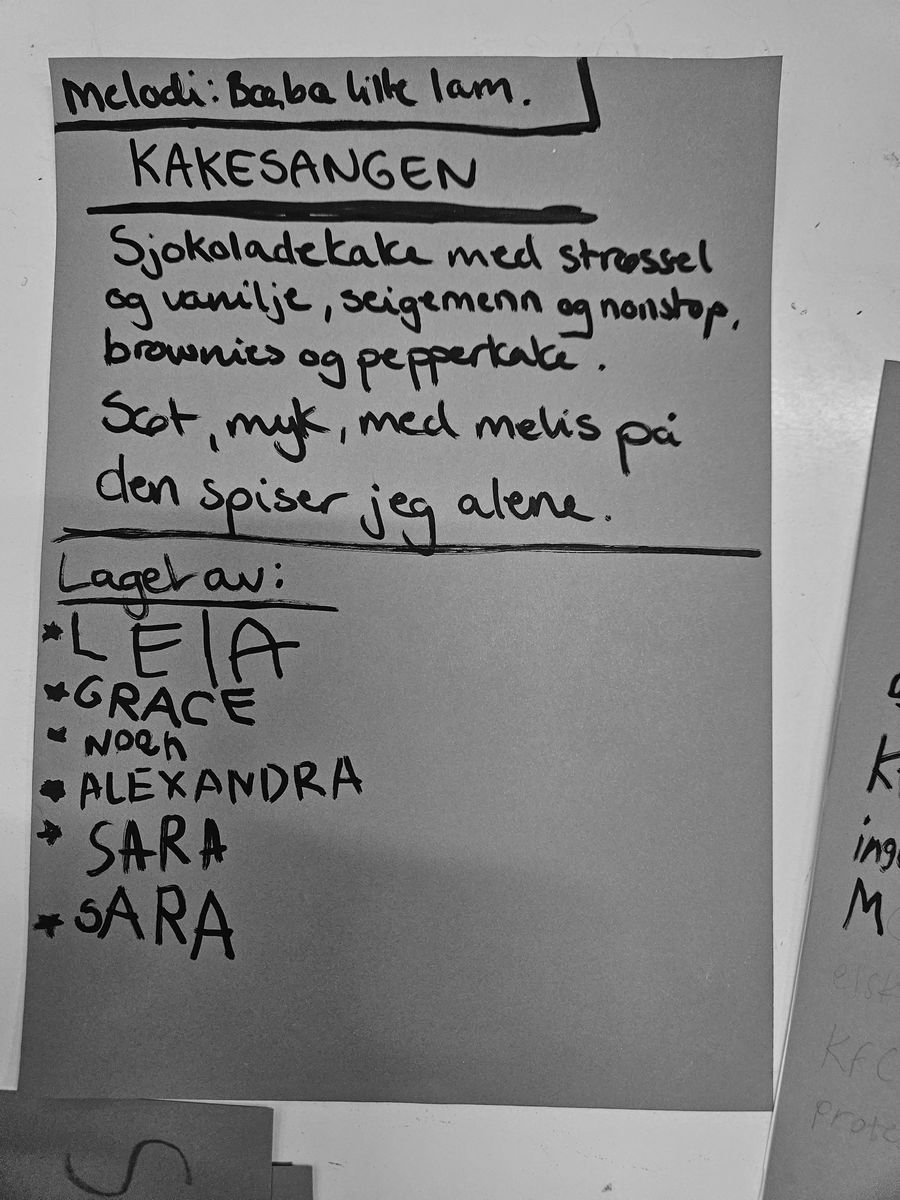 Melodi: Bæ,bæ lille lam.
KAKESANGEN
Sjokoladekake med strøssel
og vanilje, seigemenn og nonstop,
brownies og pepperkake.
Søt, myk, med melis på
den spiser jeg alene.
Laget av:
LEIA
GRACE
NOaH
ALEXANDRA
SARA
SARA
M
KFC
S